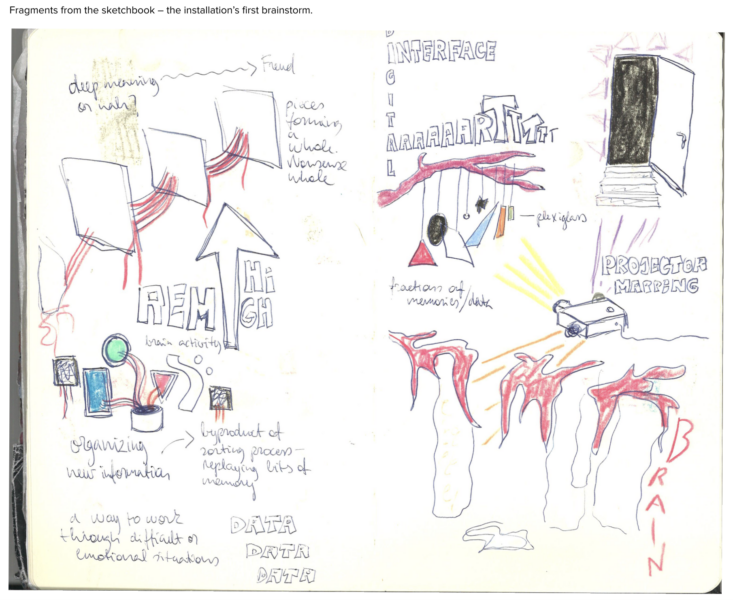 Fragments from the sketchbook – the installation's first brainstorm.
deep meaning
or nah?
Freud
pieces
forming
a
whole.
Nonsense
whole
REM
HiGH
brain activity
organizing
new information
byproduct of
sorting process –
replaying bits of
memory
a way to work
through difficult or
emotional situations
DATA
DATA
DATA
DIGITAL
INTERFACE
AAAAAAARTTTTTT
plexiglass
fractions of
memories/data
PROJECTOR
MAPPING
BRAIN